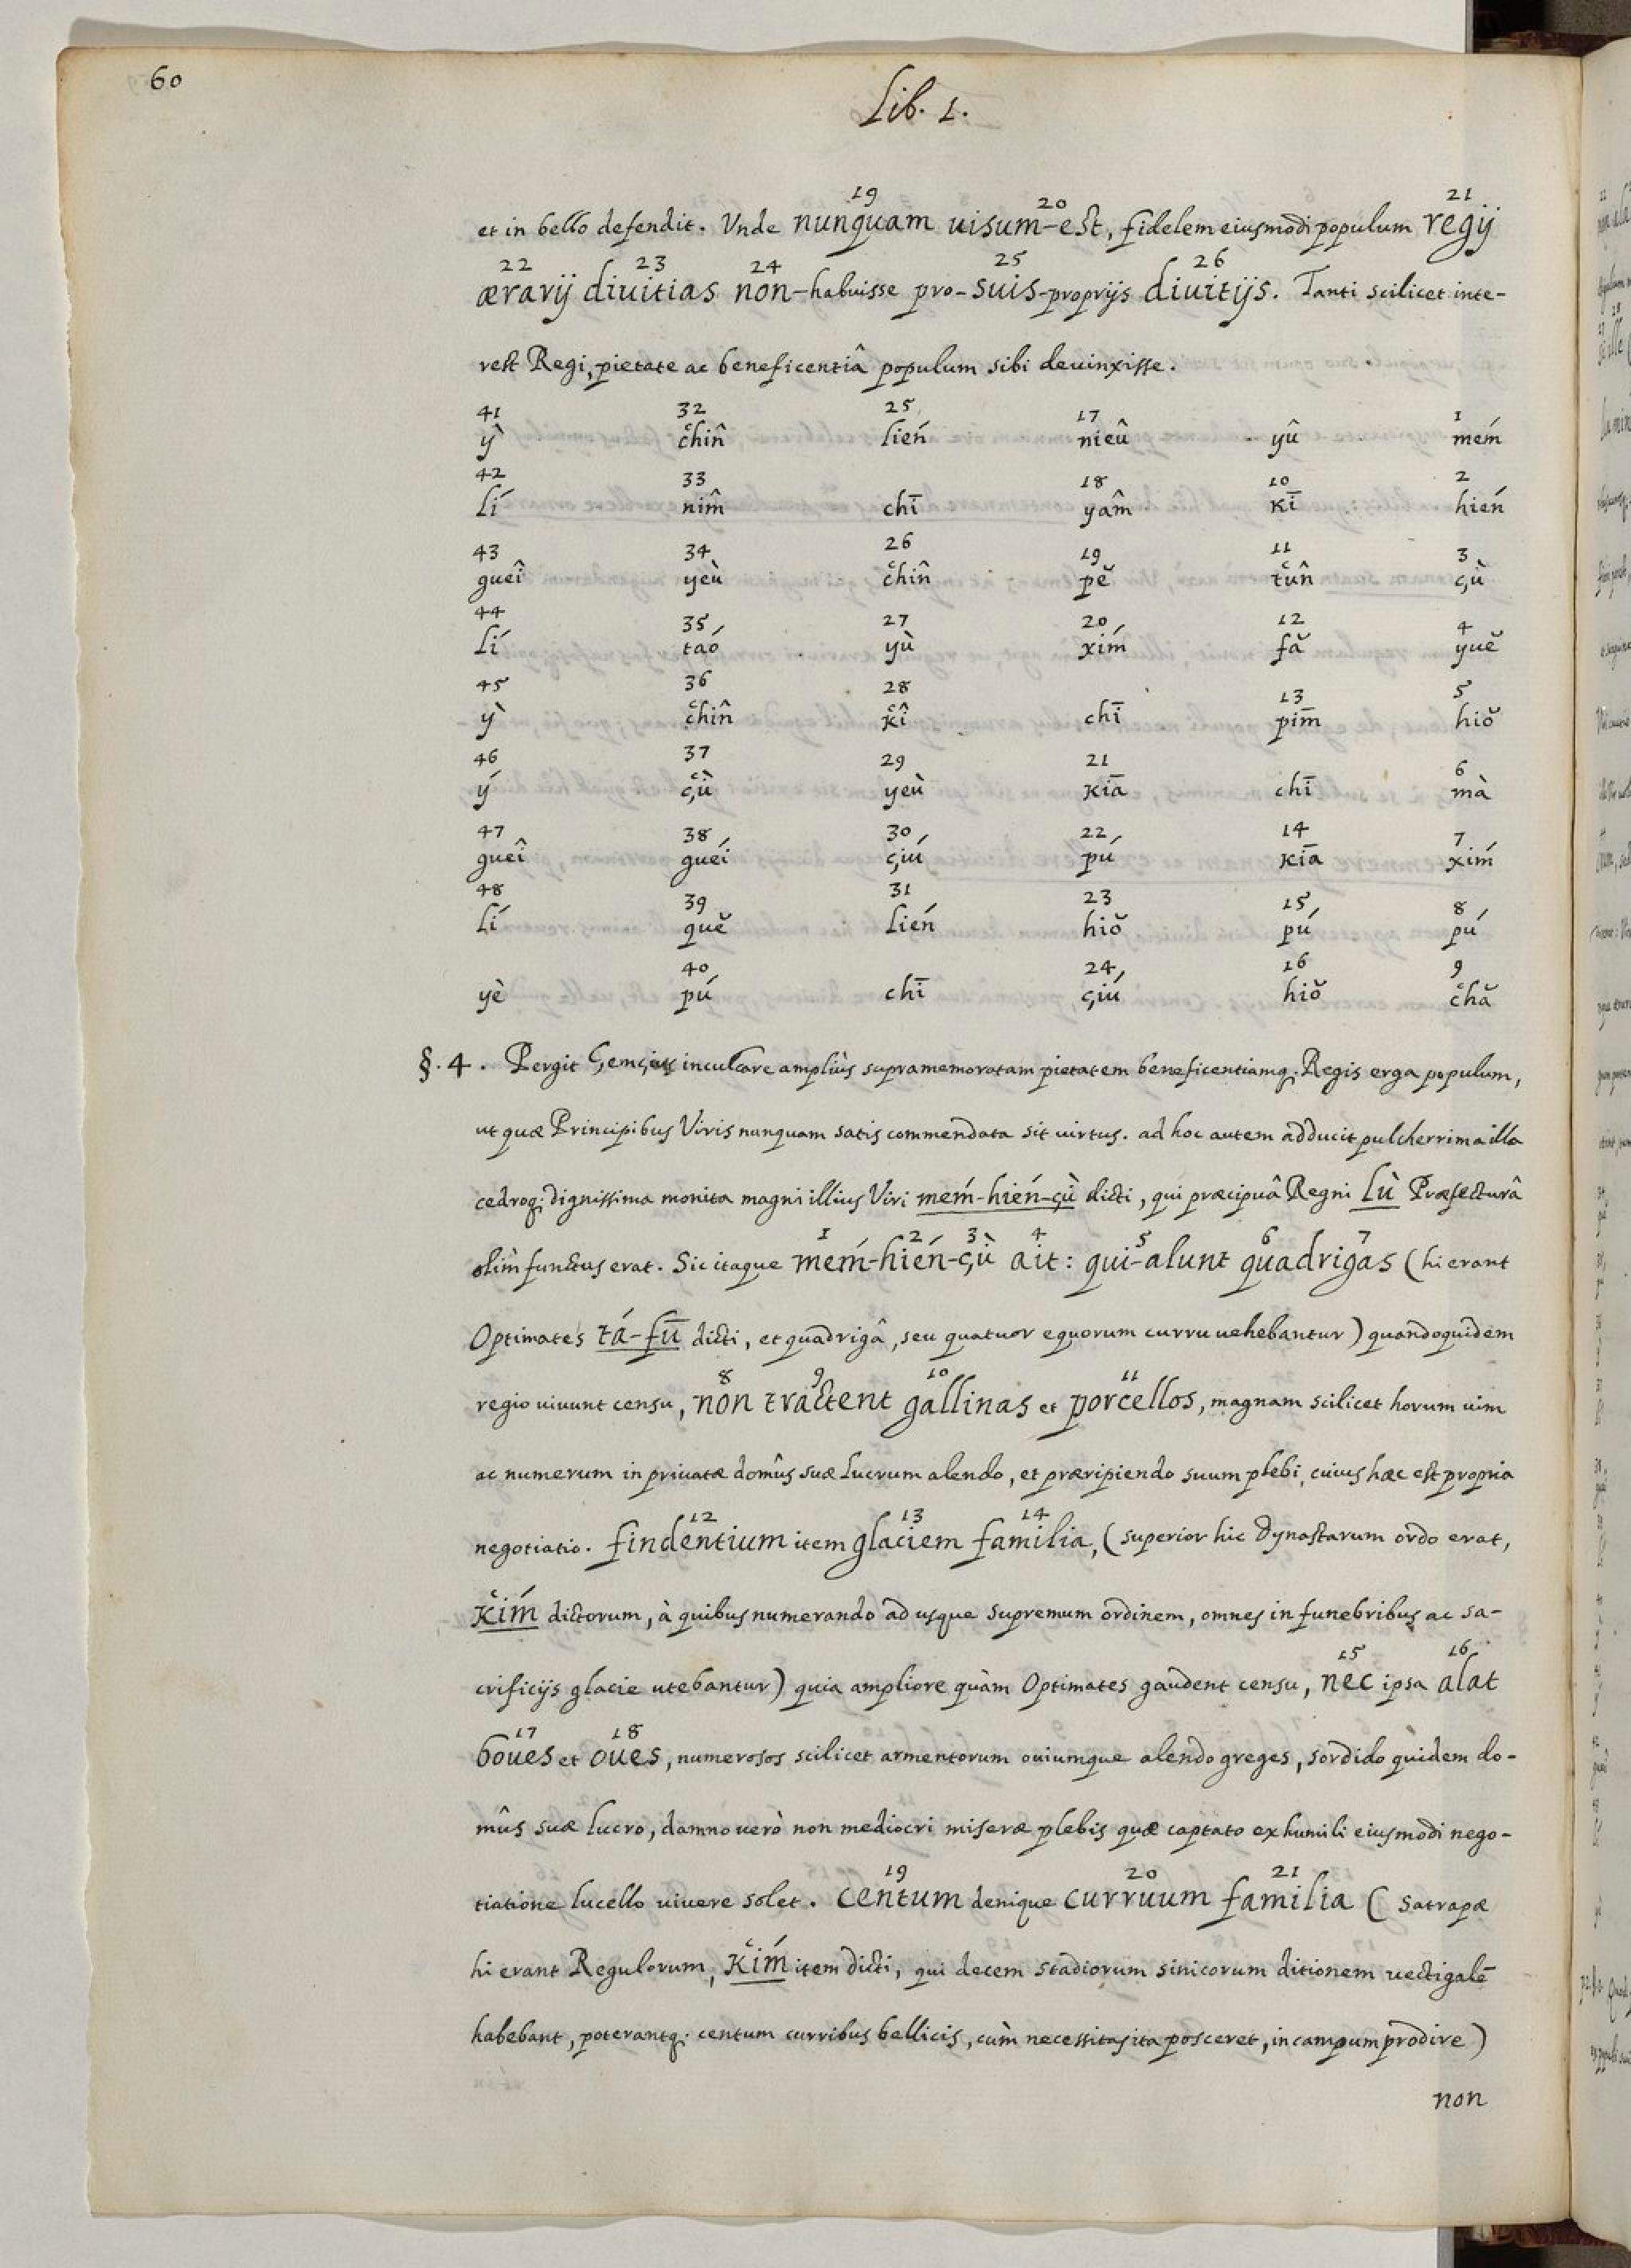 60
Lib. 1.
19 20 21
et in bello defendit. Vnde nunquam uisum-est, fidelem eiusmodi populum regij
22 23 24 25 26
ærarij diuitias non-habuisse pro-suis-proprijs diuitijs. Tanti scilicet inte-
rest Regi, pietate ac beneficentiâ populum sibi deuinxisse.
41 32 25 17 1
ỳ c̔hin̂ lień nieû yû meḿ
42 33 18 10 2
lí nim̂ chī yâm kī hień
43 34 26 19 11 3
gueî yeù c̔hin̂ pĕ t̔ûn çù
44 35 27 20 12 4
lí taó yù xiḿ fă yuĕ
45 36 28 13 5
ỳ c̔hin̂ k̔î chī pim̄ hiŏ
46 37 29 21 6
ý ç̔ù yeù kiā chī mà
47 38 30 22 14 7
gueî gueí çiú pú kiā xiḿ
48 39 31 23 15 8
lí quĕ lień hiŏ pú pú
40 24 16 9
yè pú chī çiú hiŏ c̔hă
§. 4. Pergit Çemçius inculcare ampliùs supramemoratam pietatem beneficentiamq. Regis erga populum,
ut quæ Principibus Viris nunquam satis commendata sit uirtus. ad hoc autem adducit pulcherrima illa
cedroq. dignissima monita magni illius Viri meḿ-hień-çù dicti, qui præcipuâ Regni Lù Præfecturâ
1 2 3 4 5 6 7
olim functus erat. Sic itaque meḿ-hień-çù ait: qui-alunt quadrigas (hi erant
Optimates tá-fū dicti, et quadrigâ, seu quatuor equorum curru uehebantur) quandoquidem
8 9 10 11
regio uiuunt censu, non tractent gallinas et porcellos, magnam scilicet horum uim
ac numerum in priuatæ domûs suæ lucrum alendo, et præripiendo suum plebi, cuius hæc est propria
12 13 14
negotiatio. findentium item glaciem familia, (superior hic Dynastarum ordo erat,
k̔iḿ dictorum, à quibus numerando ad usque supremum ordinem, omnes in funebribus ac sa-
15 16
crificijs glacie utebantur) quia ampliore quàm Optimates gaudent censu, nec ipsa alat
17 18
boues et oues, numerosos scilicet armentorum ouiumque alendo greges, sordido quidem do-
mûs suæ lucro, damno uerò non mediocri miseræ plebis quæ captato ex humili eiusmodi nego-
19 20 21
tiatione lucello uiuere solet. centum denique curruum familia (Satrapæ
hi erant Regulorum, k̔iḿ item dicti, qui decem stadiorum sinicorum ditionem uectigalē
habebant, poterantq. centum curribus bellicis, cùm necessitas ita posceret, in campum prodire)
non